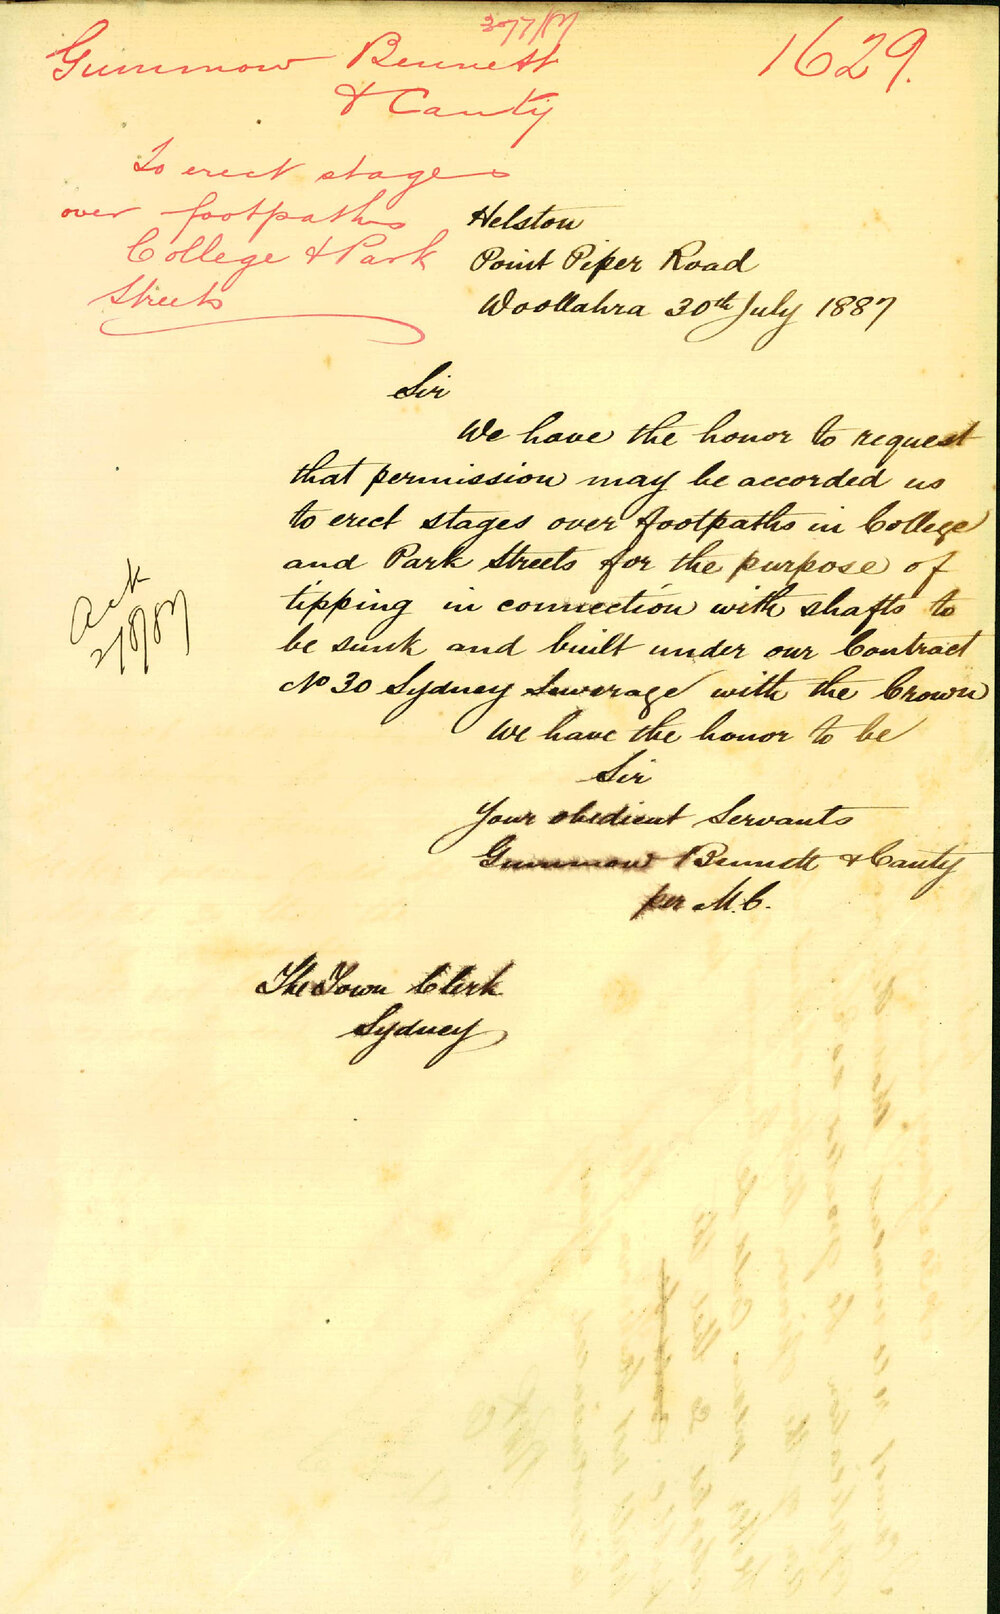 3077/87
Gummow Bennett
& Canty
1629.
To erect stages
over footpaths
College & Park
Streets
Helston
Point Piper Road
Woollahra 30th July 1887
Sir
We have the honor to request
that permission may be accorded us
to erect stages over footpaths in College
and Park Streets for the purpose of
tipping in connection with shafts to
be sunk and built under our Contract
No 30 Sydney Sewerage with the Crown
We have the honor to be
Sir
Your obedient Servants
Gummow Bennett & Canty
per M.C.
Ack
2/8/87
The Town Clerk
Sydney